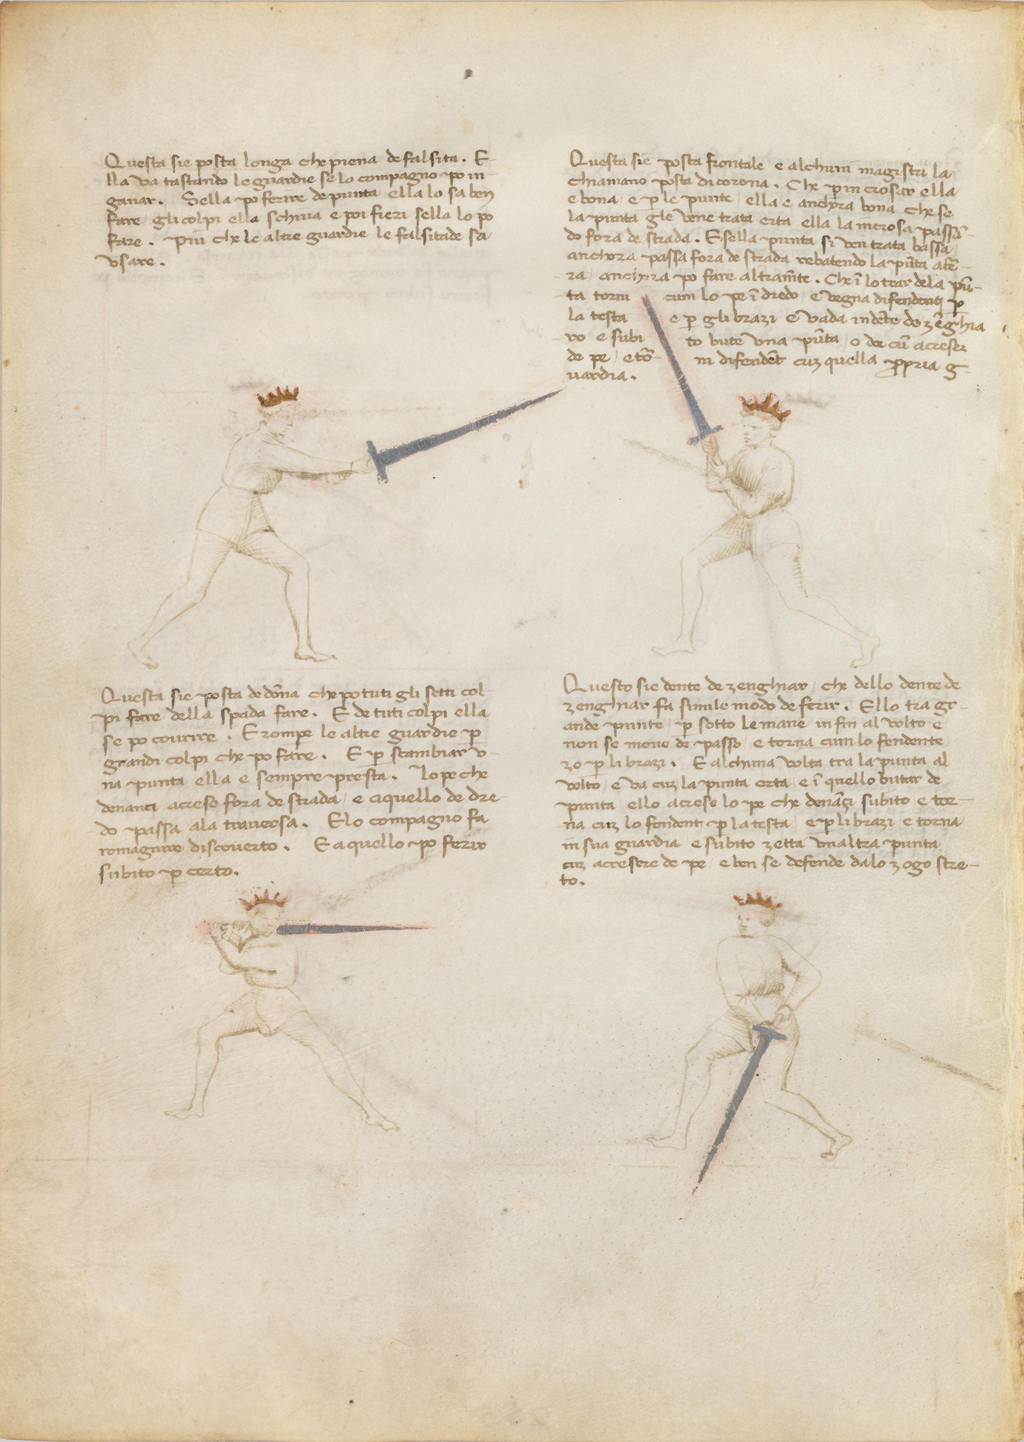 Questa sie posta longa che piena de falsita. E-
lla va tastando le guardie se lo compagno po in
ganar. Sella po ferire de punta ella lo sa ben
fare gli colpi ella schiva e poi fieri sella lo po
fare. Piu che le altre guardie le falsitade sa
usare.
Questa sie posta frontale e alchuni magistri la
chiamano posta di corona. Che p incrosar ella
e bona e p le punte ella e anchora bona che se
la punta gle vene trata erta ella la incrosa passā-
do fora de strada. E sella punta si ven trata bassa
anchora passa fora de strada rebatendo la pūta a tē-
ra anchora po fare altramēte. Che ī lo trar dela pū-
ta torni cum lo pe ī driedo e vegna di fendenti p
la testa e p gli brazi e vada in dēte de zēghia
ro e subito bute una pūta o doi cū acresci
de pe e tōni di fendēt cuz quella pp̄ria g
uardia.
Questa sie posta de dōna che po tuti gli setti col-
pi fare della spada fare. E de tuti colpi ella
se po courire. E rompe le altre guardie p
grandi colpi che po fare. E p scambiar u-
na punta ella e sempre presta. Lo pe che
denanci acrese fora de strada e aquello de dre-
do passa ala traversa. E lo compagno fa
romagnire discoverto. E aquello po ferir
subito p certo.
Questo sie dente de zenghiar che dello dente de
zenghiar fa simile modo de ferir. Ello tra gr-
ande punte p sotto le mane in fin al volto e
non se move de passo e torna cum lo fendente
zo p li brazi. E alchuna volta tra la punta al
volto e va cuz la punta erta e ī quello butar de
punta ello acrese lo pe che denāzi subito e tor-
na cuz lo fendent p la testa e p li brazi e torna
in sua guardia e subito zetta unaltra punta
cuz accressere de pe e ben se defende dalo zogo stre-
to.